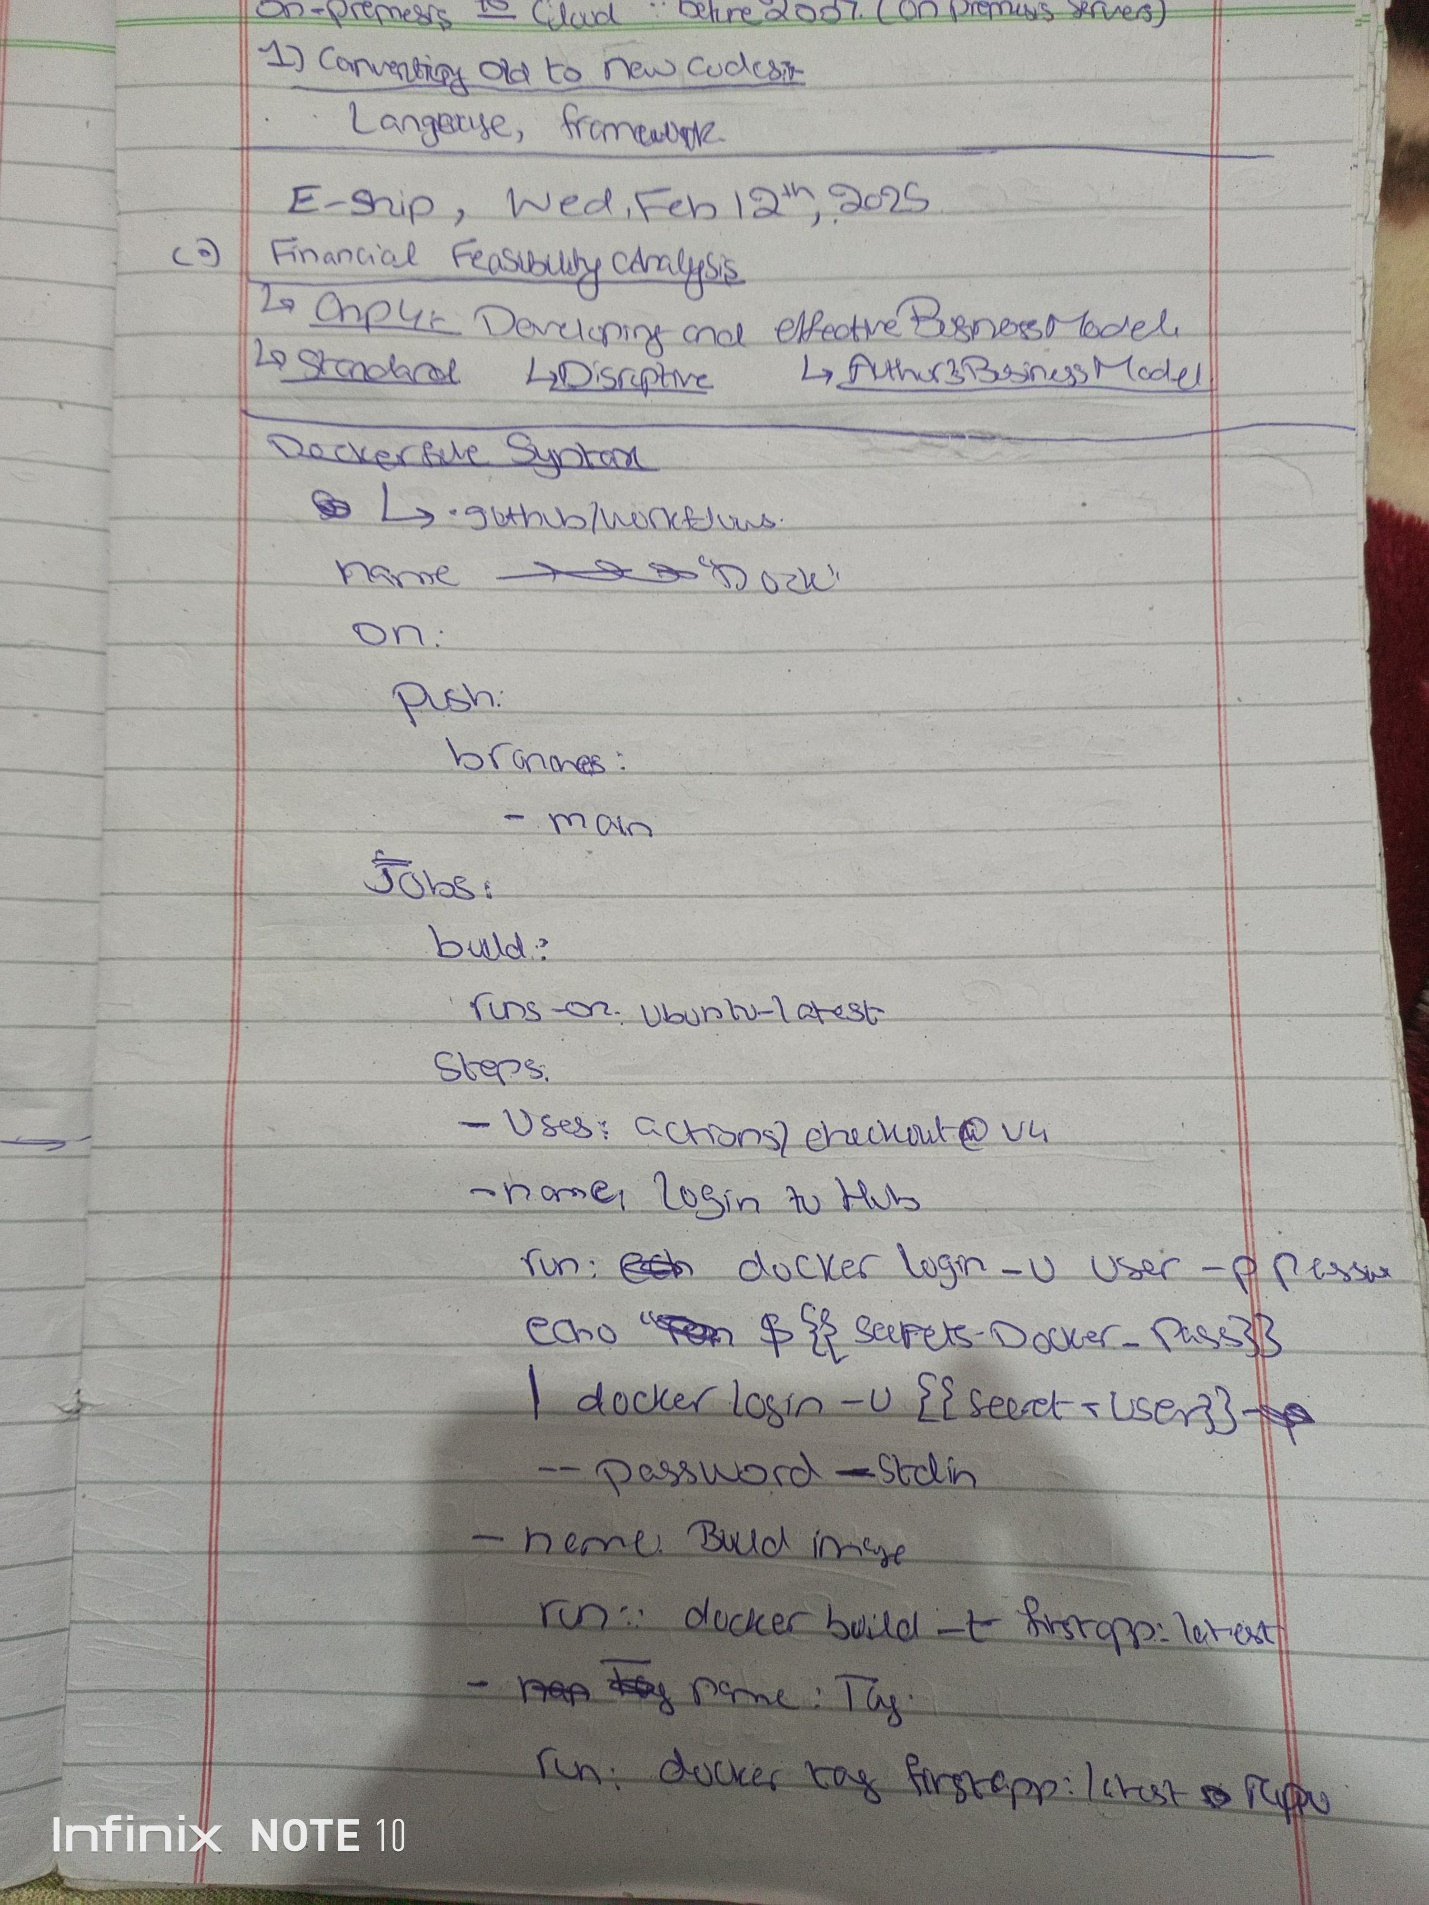 on-premesis to Cloud : before 2007. (on premises servers)
1) Converting old to new codes:-
Language, framework.
E-ship, Wed, Feb 12th, 2025
(3) Financial Feasibility Analysis
↳ Chp4:- Developing and effective Business Model.
↳ Standard ↳ Disruptive ↳ Business Model
Dockerfile Syntax
↳ .github/workflows.
name "Dock"
on:
push:
branches:
- main
Jobs:
build:
runs-on: ubuntu-latest
Steps:
- Uses: actions/checkout@v4
- name: login to Hub
run: docker login -u user -p
echo " ${{secrets.Docker_Pass}}
| docker login -u {{secret.User}}
--password-stdin
- name: Build image
run: docker build -t firstapp:latest
- name: Tag.
run: docker tag firstapp:latest
Infinix NOTE 10